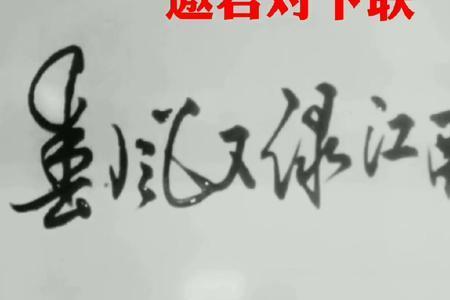 邀君对下联
春风又绿江